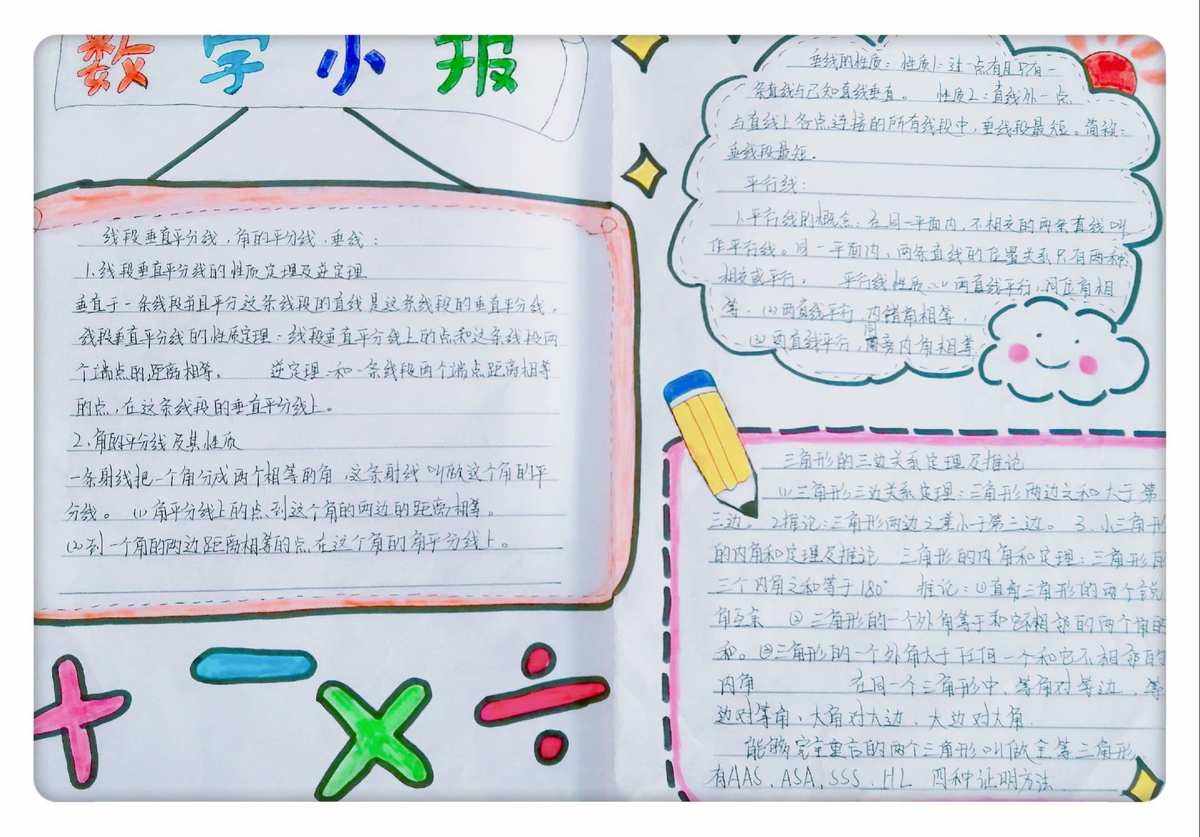 数字小报
线段垂直平分线，角的平分线，垂线：
1.线段垂直平分线的性质定理及逆定理
垂直于一条线段并且平分这条线段的直线是这条线段的垂直平分线。
线段垂直平分线的性质定理：线段垂直平分线上的点和这条线段两
个端点的距离相等。 逆定理 和一条线段两个端点距离相等
的点，在这条线段的垂直平分线上。
2.角的平分线及其性质
一条射线把一个角分成两个相等的角，这条射线叫做这个角的平
分线。 (1)角平分线上的点到这个角的两边的距离相等。
(2)到一个角的两边距离相等的点在这个角的角平分线上。
垂线的性质：性质1：过一点有且只有一
条直线与已知直线垂直。 性质2：直线外一点
与直线上各点连接的所有线段中，垂线段最短。简称：
垂线段最短。
平行线：
1.平行线的概念：在同一平面内，不相交的两条直线叫
作平行线。同一平面内，两条直线的位置关系只有两种
相交或平行。 平行线性质：(1)两直线平行，同位角相
等。(2)两直线平行，内错角相等。
(3)两直线平行，同旁内角相等
三角形的三边关系定理及推论
(1)三角形三边关系定理：三角形两边之和大于第
三边。2推论：三角形两边之差小于第三边。 3.小三角形
的内角和定理及推论 三角形的内角和定理：三角形的
三个内角之和等于180° 推论：①直角三角形的两个锐
角互余 ②三角形的一个外角等于和它不相邻的两个角的
和。③三角形的一个外角大于任何一个和它不相邻的
内角 在同一个三角形中，等角对等边，等
边对等角，大角对大边，大边对大角.
能够完全重合的两个三角形叫做全等三角形
有AAS，ASA，SSS，HL 四种证明方法